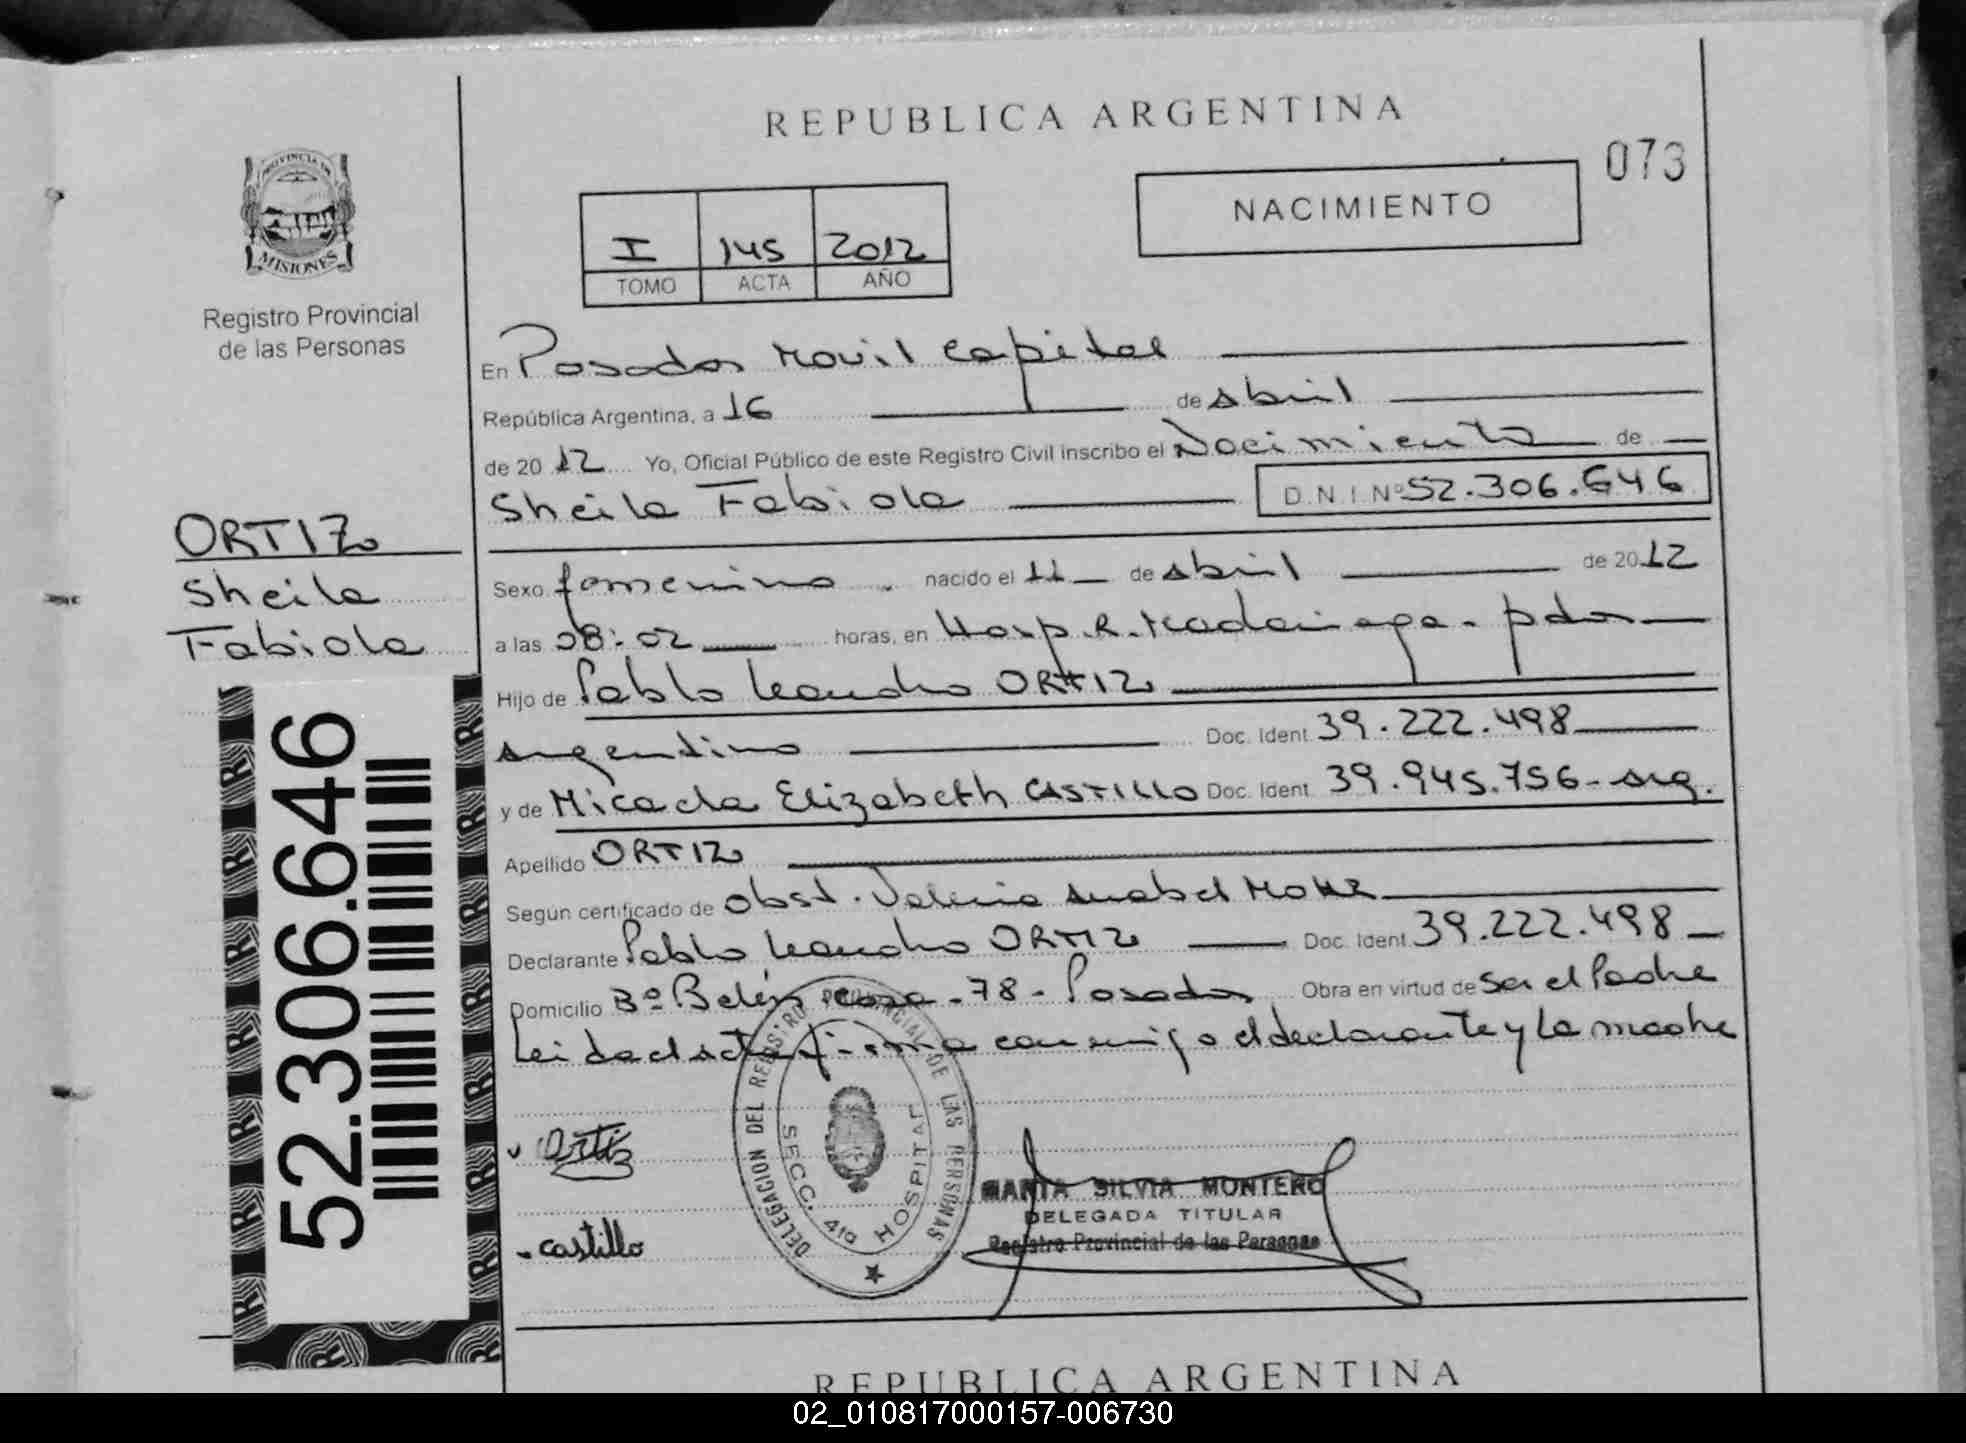 REPUBLICA ARGENTINA
073
PROVINCIA DE
MISIONES
Registro Provincial
de las Personas
NACIMIENTO
I 145 2012
TOMO ACTA AÑO
En Posadas Movil Capital
República Argentina, a 16 de Abril
de 20 12 Yo, Oficial Público de este Registro Civil inscribo el Nacimiento de
Sheila Fabiola D.N.I. Nº 52.306.646
ORTIZ
Sheila
Fabiola
Sexo femenino nacido el 11 de Abril de 2012
a las 08:02 horas, en Hosp. R. Madariaga - pdas
Hijo de Pablo Leandro ORTIZ
argentino Doc. Ident. 39.222.498
y de Micaela Elizabeth CASTILLO Doc. Ident. 39.945.756 - arg.
Apellido ORTIZ
Según certificado de Obst. Valeria Anabel
Declarante Pablo Leandro ORTIZ Doc. Ident. 39.222.498
Domicilio Bº Belén casa - 78 - Posadas Obra en virtud de ser el Padre
Leida el acta firma conmigo el declarante y la madre
52.306.646
Ortiz
castillo
DELEGACION DEL REGISTRO PROVINCIAL DE LAS PERSONAS
SECC. 4ta HOSPITAL
MARIA SILVIA MONTERO
DELEGADA TITULAR
Registro Provincial de las Personas
REPUBLICA ARGENTINA
02_010817000157-006730